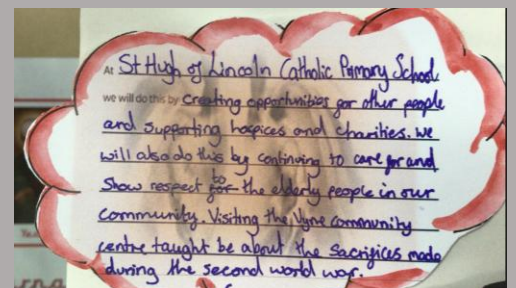 At St Hugh of Lincoln Catholic Primary School
we will do this by Creating opportunities for other people
and supporting hospices and charities. We
will also do this by continuing to care for and
Show respect to the elderly people in our
Community. Visiting the Vyne community
centre taught be about the sacrifices made
during the second world war.